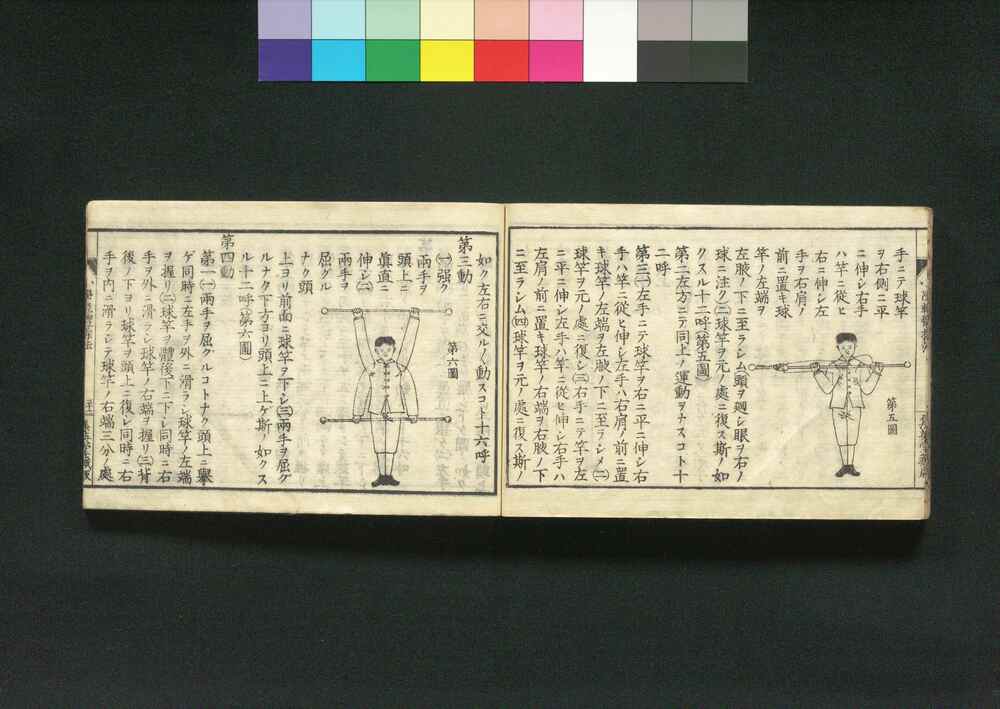 手ニテ球竿
ヲ右側ニ平
ニ伸シ右手
ハ竿ニ從ヒ
右ニ伸シ左
手ヲ右肩ノ
前ニ置キ球
竿ノ左端ヲ
左腋ノ下ニ至ラシム(頭ヲ廻シ眼ヲ右ノ
球ニ注ク)(二)球竿ヲ元ノ處ニ復ス斯ノ如
クスル十二呼(第五圖)
第二左方ニテ同上ノ運動ヲナスコト十
二呼
第三(一)左手ニテ球竿ヲ右ニ平ニ伸シ右
手ハ竿ニ從ヒ伸シ左手ハ右肩ノ前ニ置
キ球竿ノ左端ヲ左腋ノ下ニ至ラシメ(二)
球竿ヲ元ノ處ニ復シ(三)右手ニテ竿ヲ左
ニ平ニ伸シ左手ハ竿ニ從ヒ伸シ右手ハ
左肩ノ前ニ置キ球竿ノ右端ヲ右腋ノ下
ニ至ラシム(四)球竿ヲ元ノ處ニ復ス斯ノ
第五圖
如ク左右ニ交ル〱動スコト十六呼
第三動
(一)强ク
兩手ヲ
頭上ニ
眞直ニ
伸シ(二)
兩手ヲ
屈クル
ナク頭
上ヨリ前面ニ球竿ヲ下シ(三)兩手ヲ屈グ
ルナク下方ヨリ頭上ニ上ゲ斯ノ如クス
ル十二呼(第六圖)
第六圖
第四動
第一(一)兩手ヲ屈クルコトナク頭上ニ擧
ゲ同時ニ左手ヲ外ニ滑ラシ球竿ノ左端
ヲ握リ(二)球竿ヲ體後ニ下シ同時ニ右
手ヲ外ニ滑ラシ球竿ノ右端ヲ握リ(三)背
後ノ下ヨリ球竿ヲ頭上ニ復シ同時ニ右
手ヲ内ニ滑ラシテ球竿ノ右端三分ノ處